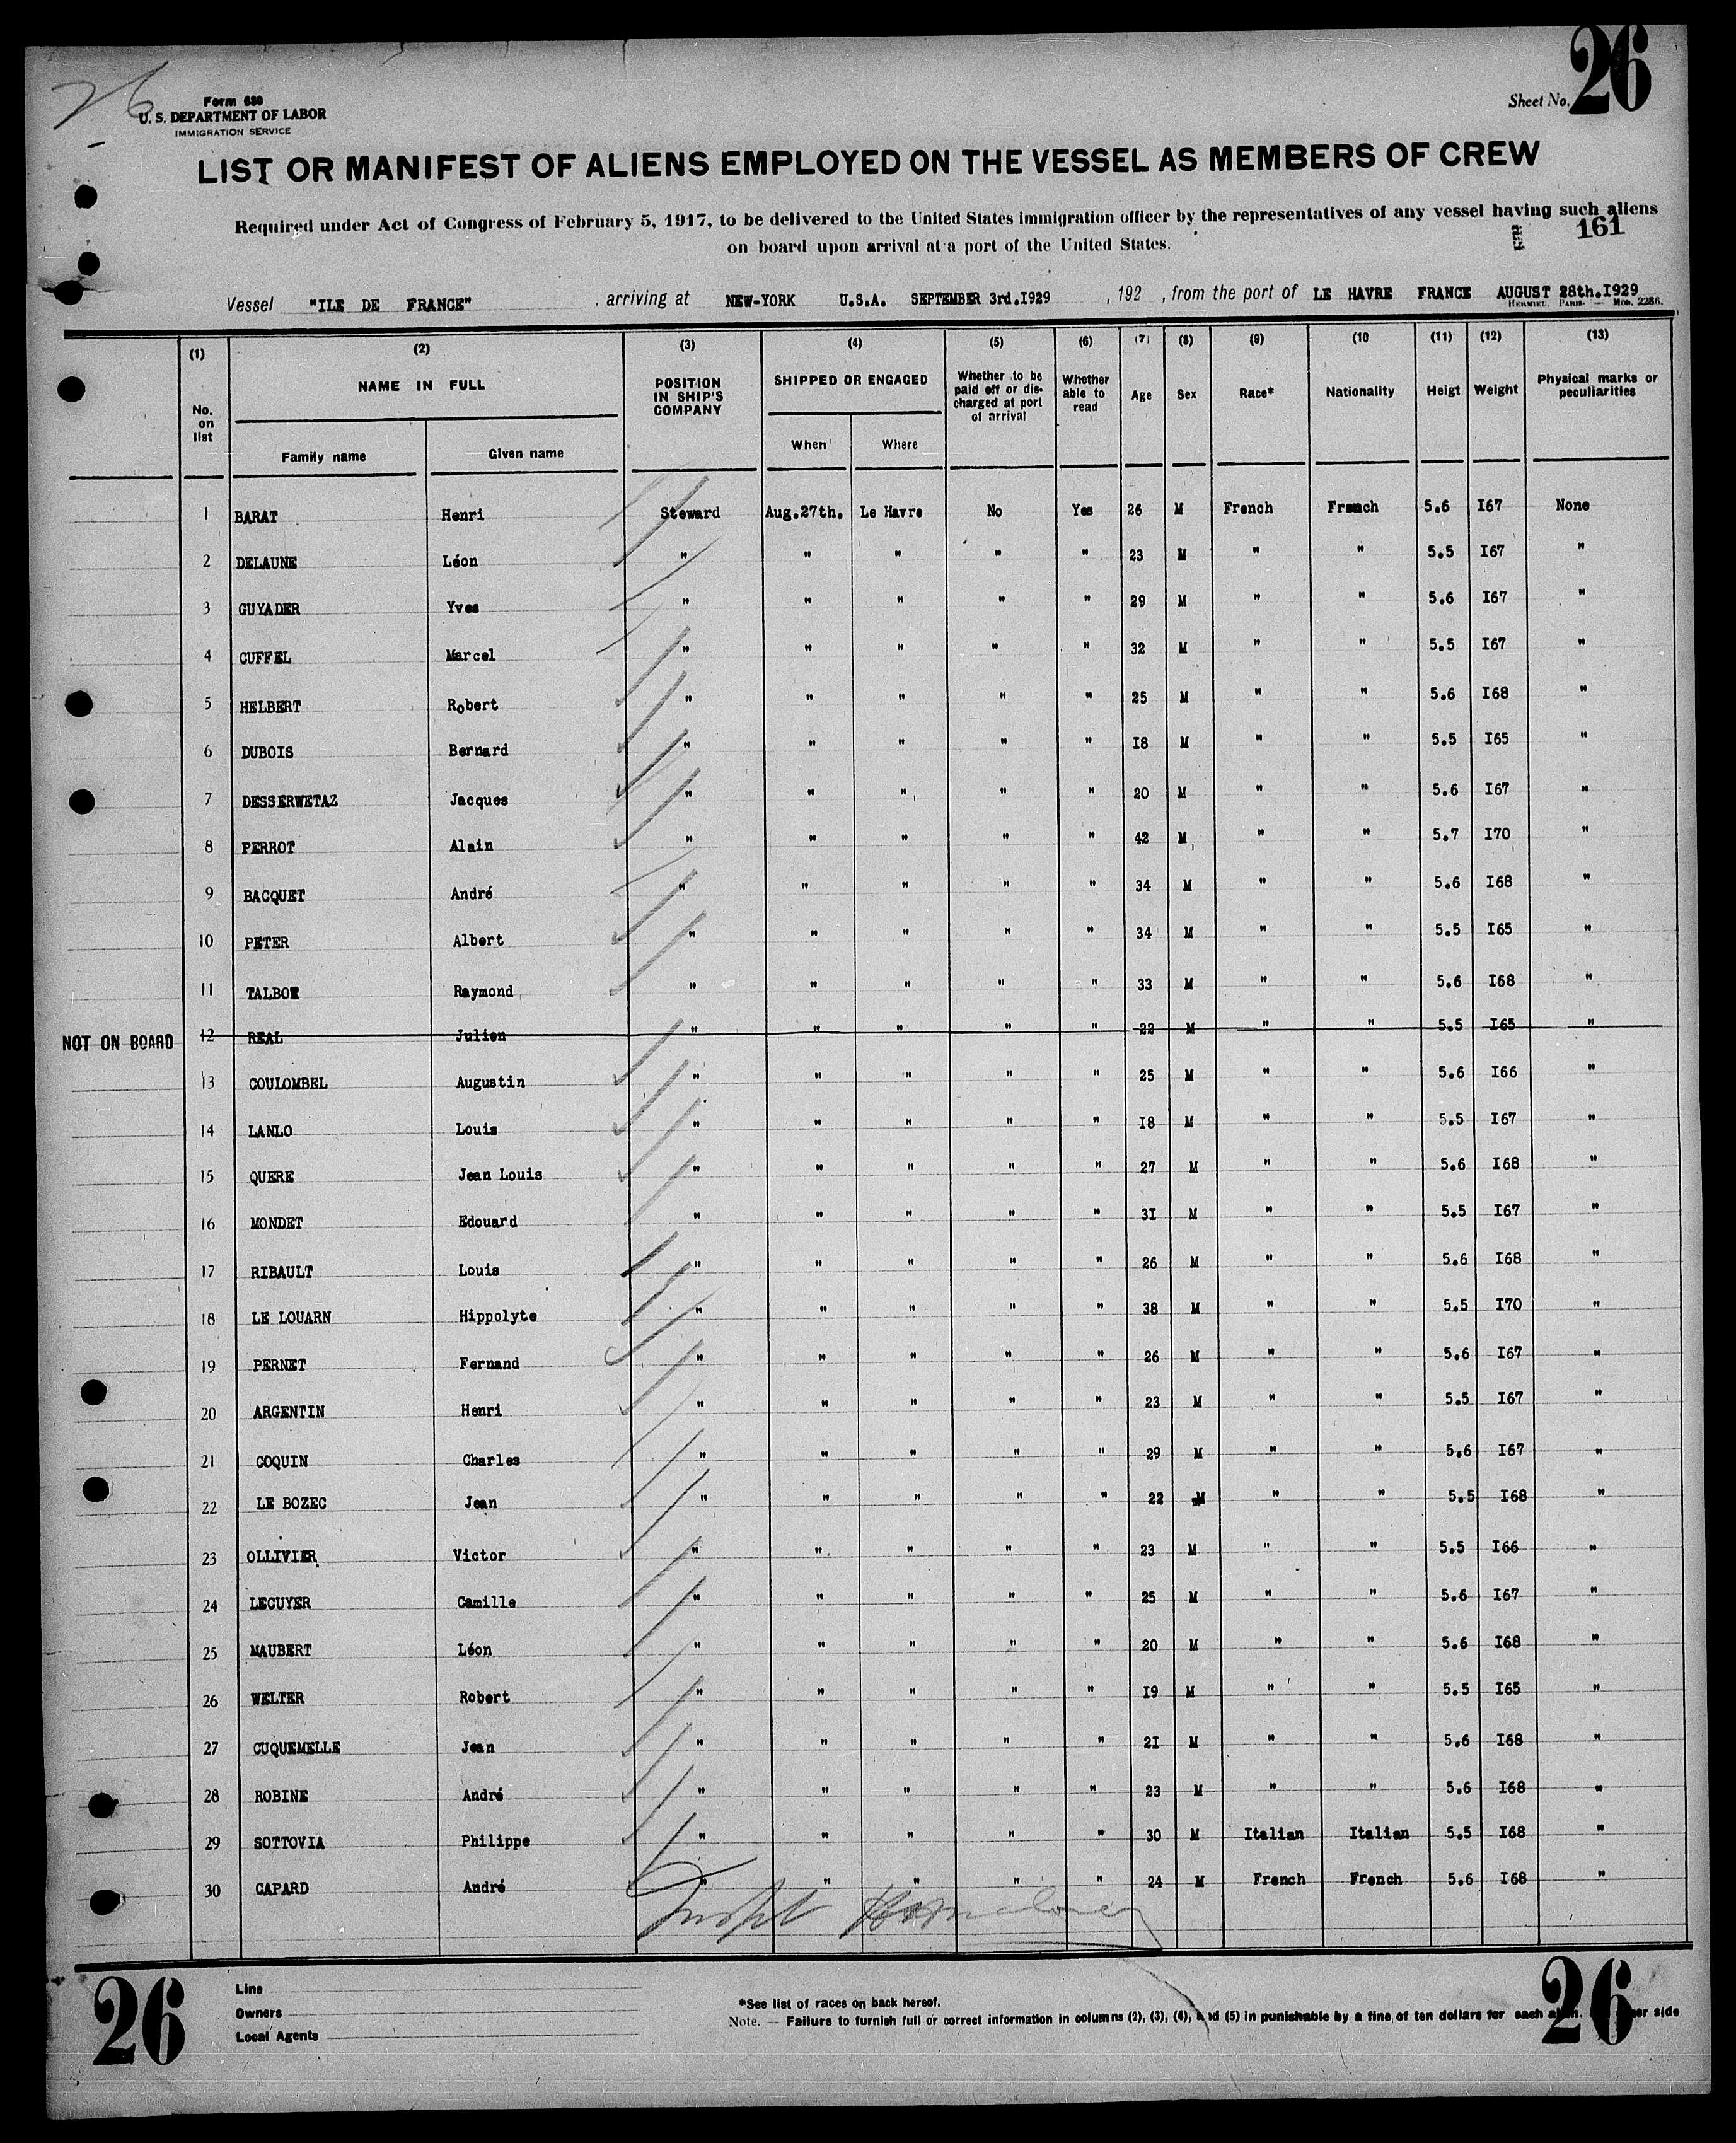 26
26
Form 680
U. S. DEPARTMENT OF LABOR
IMMIGRATION SERVICE
Sheet No.
LIST OR MANIFEST OF ALIENS EMPLOYED ON THE VESSEL AS MEMBERS OF CREW
Required under Act of Congress of February 5, 1917, to be delivered to the United States immigration officer by the representatives of any vessel having such aliens
on board upon arrival at a port of the United States.
161
Vessel "ILE DE FRANCE" , arriving at NEW-YORK U.S.A. SEPTEMBER 3rd.I929 , 192 , from the port of LE HAVRE FRANCE AUGUST 28th.I929
HERMIEU. PARIS. — Mod. 2286.
(1) (2) (3) (4) (5) (6) (7) (8) (9) (10 (11) (12) (13)
No. on list NAME IN FULL POSITION IN SHIP'S COMPANY SHIPPED OR ENGAGED Whether to be paid off or discharged at port of arrival Whether able to read Age Sex Race* Nationality Heigt Weight Physical marks or peculiarities
Family name Given name When Where
1 BARAT Henri Steward Aug.27th. Le Havre No Yes 26 M French French 5.6 I67 None
2 DELAUNE Léon " " " " " 23 M " " 5.5 I67 "
3 GUYADER Yves " " " " " 29 M " " 5.6 I67 "
4 CUFFEL Marcel " " " " " 32 M " " 5.5 I67 "
5 HELBERT Robert " " " " " 25 M " " 5.6 I68 "
6 DUBOIS Bernard " " " " " I8 M " " 5.5 I65 "
7 DESSERWETAZ Jacques " " " " " 20 M " " 5.6 I67 "
8 PERROT Alain " " " " " 42 M " " 5.7 I70 "
9 BACQUET André " " " " " 34 M " " 5.6 I68 "
10 PETER Albert " " " " " 34 M " " 5.5 I65 "
11 TALBOT Raymond " " " " " 33 M " " 5.6 I68 "
NOT ON BOARD 12 REAL Julien " " " " " 22 M " " 5.5 I65 "
13 COULOMBEL Augustin " " " " " 25 M " " 5.6 I66 "
14 LANLO Louis " " " " " I8 M " " 5.5 I67 "
15 QUERE Jean Louis " " " " " 27 M " " 5.6 I68 "
16 MONDET Edouard " " " " " 3I M " " 5.5 I67 "
17 RIBAULT Louis " " " " " 26 M " " 5.6 I68 "
18 LE LOUARN Hippolyte " " " " " 38 M " " 5.5 I70 "
19 PERNET Fernand " " " " " 26 M " " 5.6 I67 "
20 ARGENTIN Henri " " " " " 23 M " " 5.5 I67 "
21 COQUIN Charles " " " " " 29 M " " 5.6 I67 "
22 LE BOZEC Jean " " " " " 22 M " " 5.5 I68 "
23 OLLIVIER Victor " " " " " 23 M " " 5.5 I66 "
24 LECUYER Camille " " " " " 25 M " " 5.6 I67 "
25 MAUBERT Léon " " " " " 20 M " " 5.6 I68 "
26 WELTER Robert " " " " " I9 M " " 5.5 I65 "
27 CUQUEMELLE Jean " " " " " 2I M " " 5.6 I68 "
28 ROBINE André " " " " " 23 M " " 5.6 I68 "
29 SOTTOVIA Philippe " " " " " 30 M Italian Italian 5.5 I68 "
30 CAPARD André " " " " " 24 M French French 5.6 I68 "
26
Line
Owners
Local Agents
*See list of races on back hereof.
Note. — Failure to furnish full or correct information in columns (2), (3), (4), and (5) in punishable by a fine of ten dollars for each alien. side
26